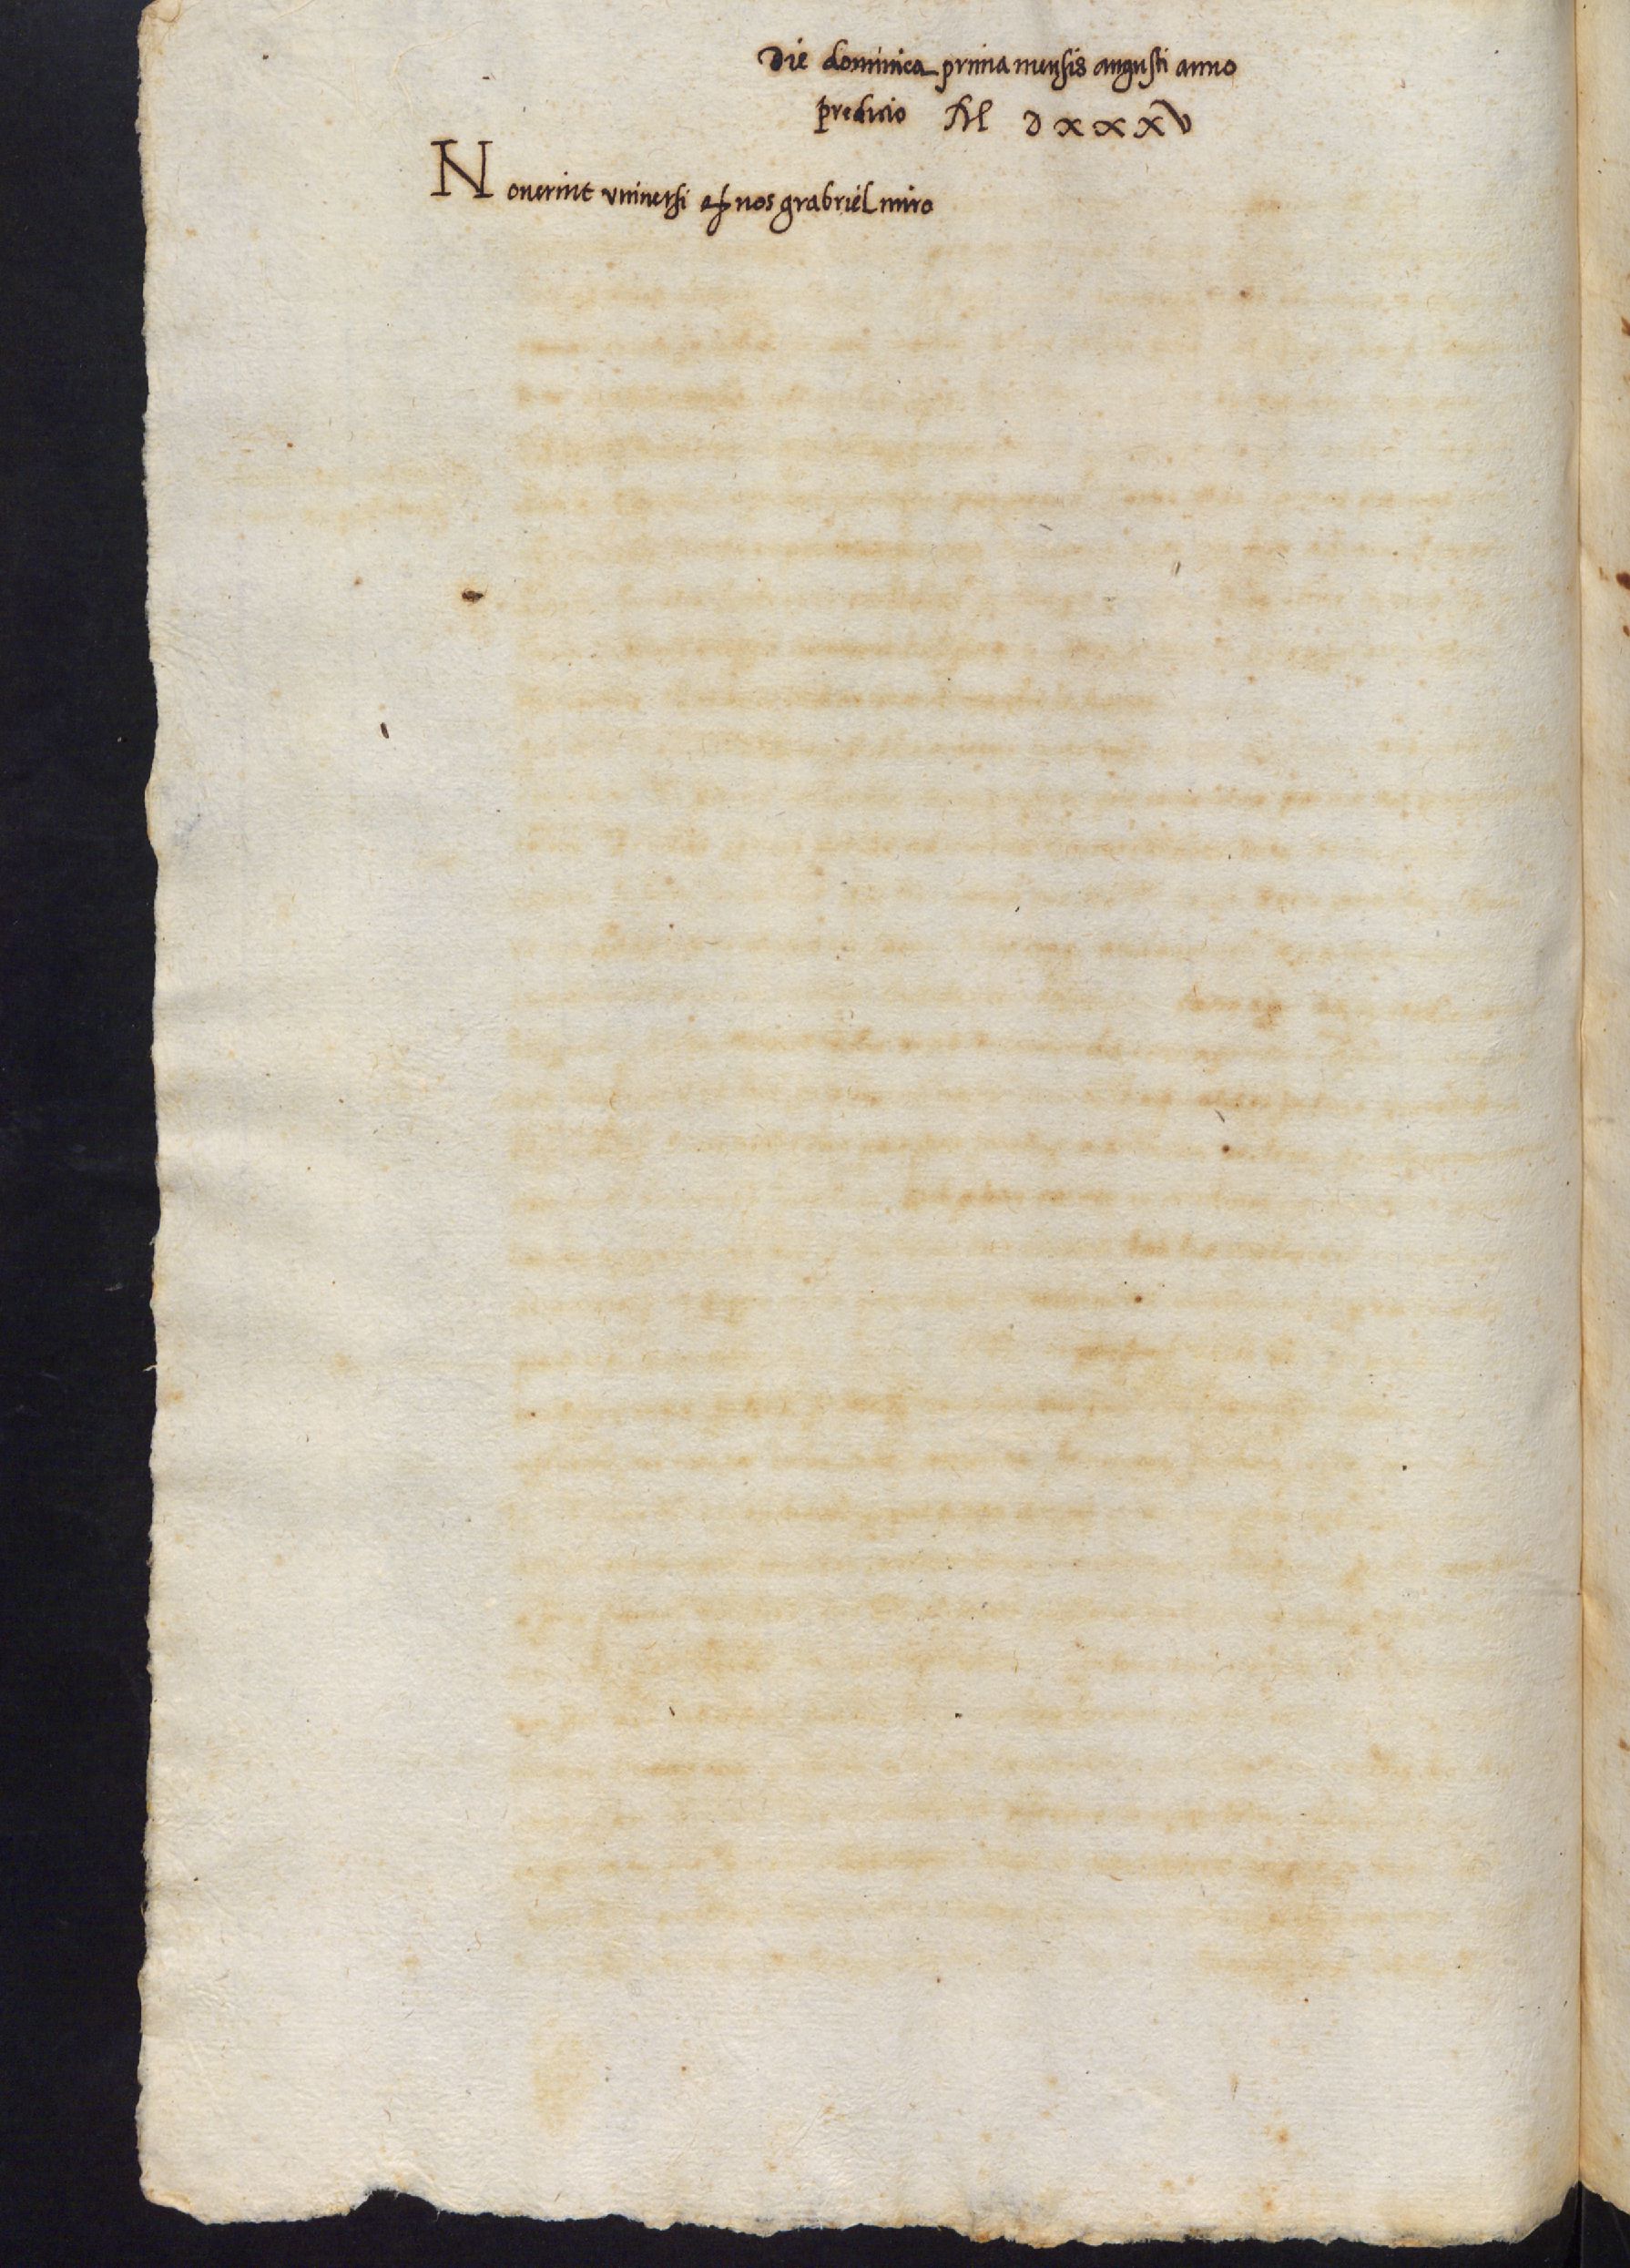 Die dominica prima mensis augusti anno
predicto M D x x x v
Noverint vniversi qp nos grabriel miro